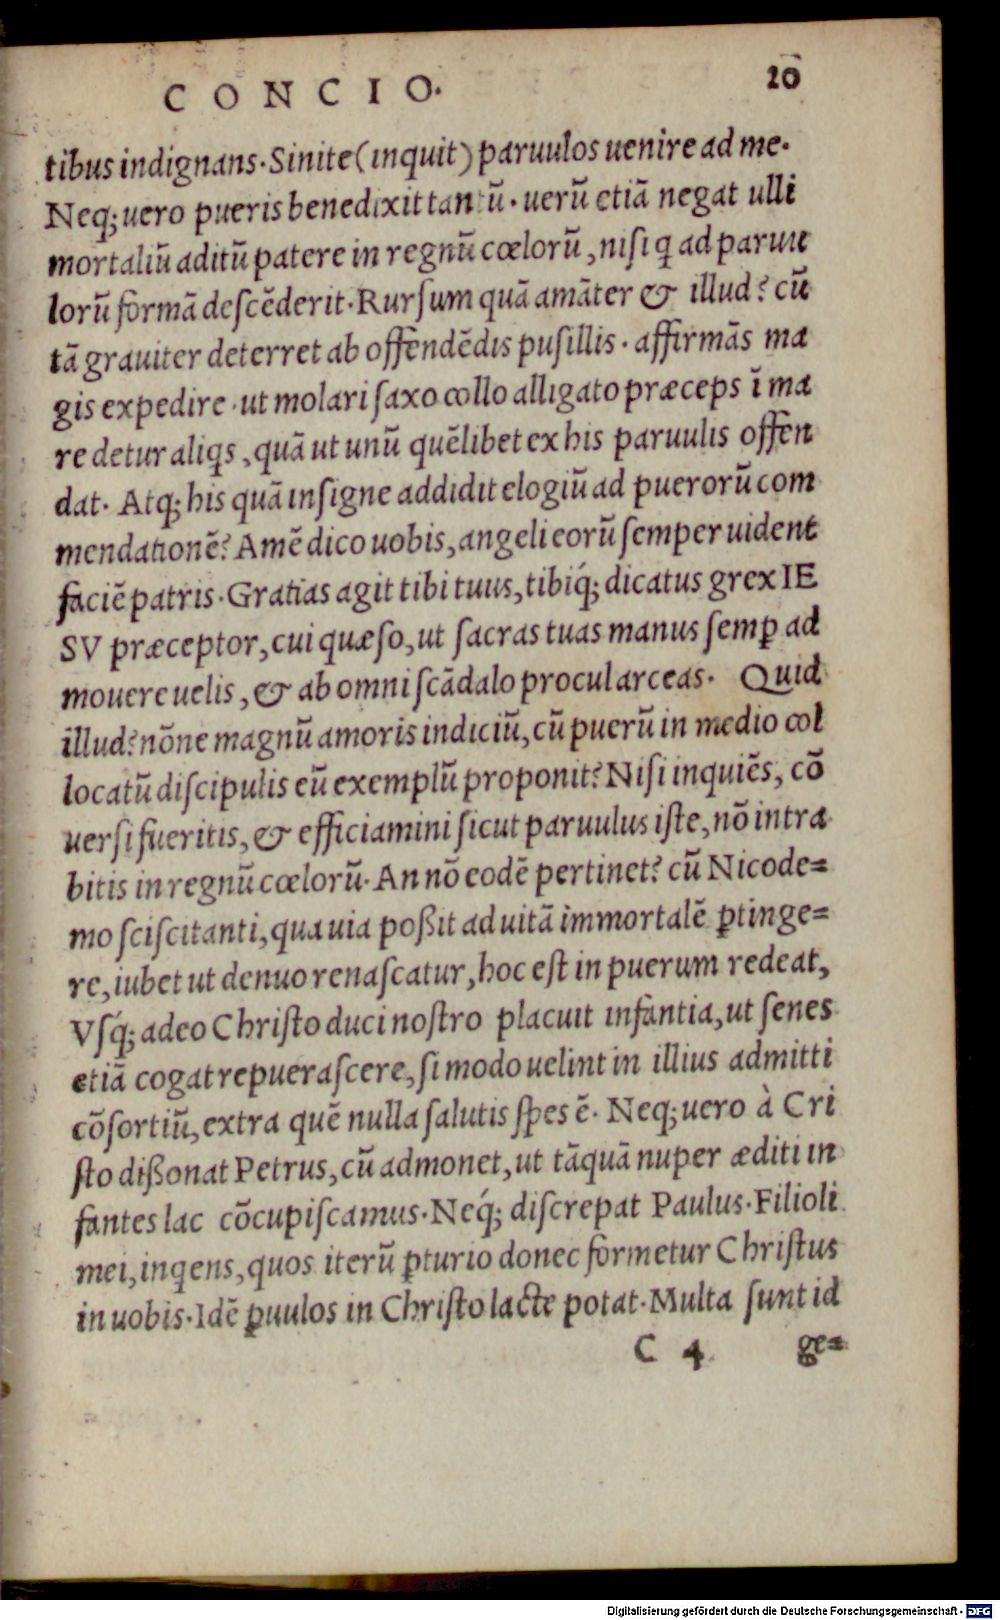 CONCIO. 20
tibus indignans. Sinite (inquit) paruulos uenire ad me.
Neq; uero pueris benedixit tantū. uerū etiā negat ulli
mortaliū aditū patere in regnū cœlorū, nisi q ad paruu
lorū formā descēderit. Rursum quā amāter & illud? cū
tā grauiter deterret ab offendēdis pusillis. affirmās ma
gis expedire. ut molari saxo collo alligato præceps ī ma
re detur aliqs, quā ut unū quēlibet ex his paruulis offen
dat. Atq; his quā insigne addidit elogiū ad puerorū com
mendationē? Amē dico uobis, angeli eorū semper uident
faciē patris. Gratias agit tibi tuus, tibiq́; dicatus grex IE
SV præceptor, cui quæso, ut sacras tuas manus semꝑ ad
mouere uelis, & ab omni scādalo procul arceas. Quid
illud? nōne magnū amoris indiciū, cū puerū in medio col
locatū discipulis eū exemplū proponit? Nisi inquiēs, cō
uersi fueritis, & efficiamini sicut paruulus iste, nō intra
bitis in regnū cœlorū. An nō eodē pertinet? cū Nicode=
mo sciscitanti, qua uia poßit ad uitā immortalē ꝑtinge=
re, iubet ut denuo renascatur, hoc est in puerum redeat,
Vsq́; adeo Christo duci nostro placuit infantia, ut senes
etiā cogat repuerascere, si modo uelint in illius admitti
cōsortiū, extra quē nulla salutis spes ē. Neq; uero à Cri
sto dißonat Petrus, cū admonet, ut tāquā nuper æditi in
fantes lac cōcupiscamus. Neq́; discrepat Paulus. Filioli
mei, inqens, quos iterū ꝑturio donec formetur Christus
in uobis. Idē ꝑuulos in Christo lacte potat. Multa sunt id
C 4 ge=
Digitalisierung gefördert durch die Deutsche Forschungsgemeinschaft - DFG